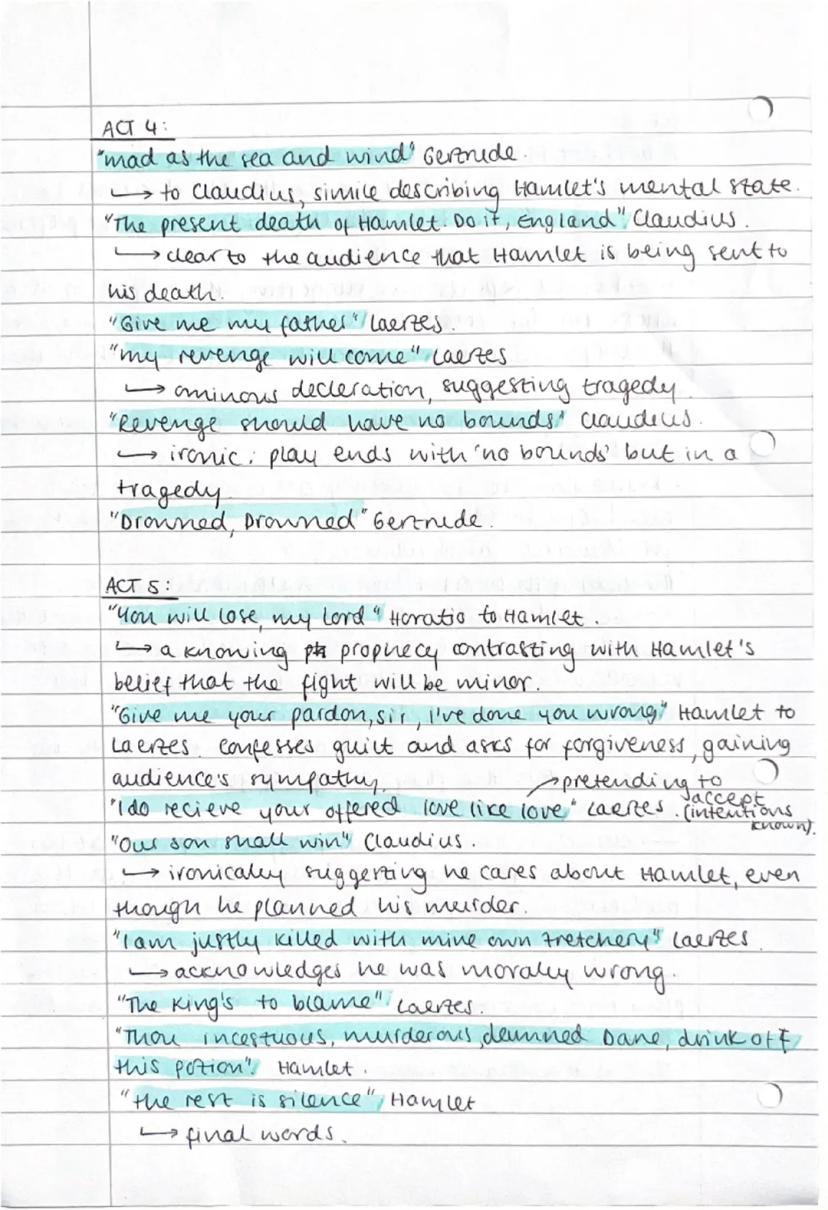 ACT 4:
"mad as the sea and wind" Gertrude.
→ to Claudius, simile describing Hamlet's mental state.
"The present death of Hamlet. Do it, England" Claudius.
→ clear to the audience that Hamlet is being sent to
his death.
"Give me my father" Laertes.
"my revenge will come" Laertes
→ ominous decleration, suggesting tragedy.
"Revenge should have no bounds" Claudius.
→ ironic: play ends with 'no bounds' but in a
tragedy.
"Drowned, Drowned" Gertrude.
ACT 5:
"You will lose, my lord" Horatio to Hamlet.
→ a knowing prophecy contrasting with Hamlet's
belief that the fight will be minor.
"Give me your pardon, sir, i've done you wrong" Hamlet to
Laertes. confesses guilt and asks for forgiveness, gaining
audience's sympathy.
"I do recieve your offered love like love" Laertes.
→ pretending to
accept
(intentions
known).
"Our son shall win" Claudius.
→ ironicaley suggesting he cares about Hamlet, even
though he planned his murder.
"I am justly killed with mine own tretchery" Laertes.
→ acknowledges he was moraley wrong.
"The King's to blame" Laertes.
"Thou incestuous, murderous, damned Dane, drink off
this potion". Hamlet.
"the rest is silence" Hamlet
→ final words.